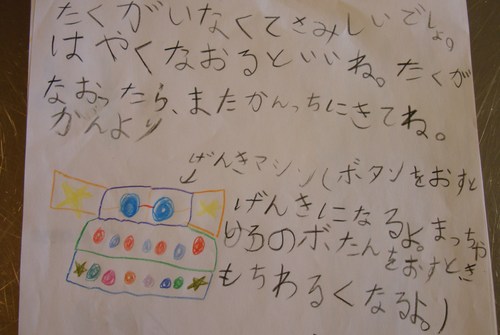 たくがいなくてさみしいでしょ。
はやくなおるといいね。たくが
なおったら、またかんっちにきてね。
かんより
げんきマシン(ボタンをおすと
げんきになるよ。まっちゃ
いろのボたんをおすとき
もちわるくなるよ。)